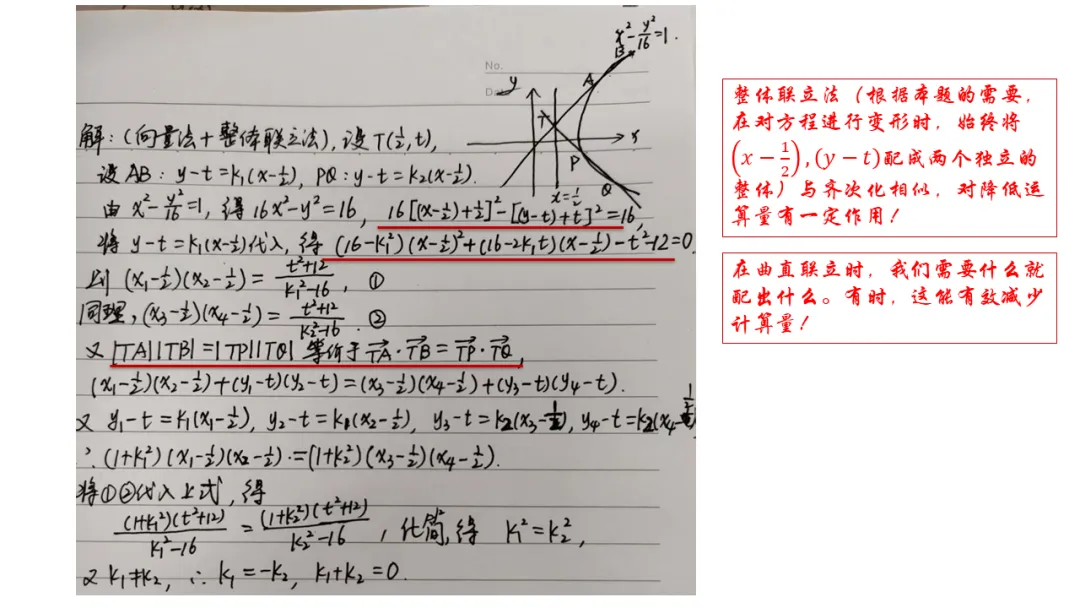 x²-y²/16=1.
No.
Da
y
B
A
T
x
P
Q
x=1/2
解:(向量法+整体联立法),设T(1/2,t),
设AB:y-t=k₁(x-1/2),PQ:y-t=k₂(x-1/2).
由x²-y²/16=1,得16x²-y²=16,16[(x-1/2)+1/2]²-[(y-t)+t]²=16,
将y-t=k₁(x-1/2)代入,得(16-k₁²)(x-1/2)²+(16-2k₁t)(x-1/2)-t²-12=0.
则(x₁-1/2)(x₂-1/2)=(t²+12)/(k₁²-16),①
同理,(x₃-1/2)(x₄-1/2)=(t²+12)/(k₂²-16).②
又|TA||TB|=|TP||TQ|等价于TA·TB=TP·TQ,
(x₁-1/2)(x₂-1/2)+(y₁-t)(y₂-t)=(x₃-1/2)(x₄-1/2)+(y₃-t)(y₄-t).
又y₁-t=k₁(x₁-1/2),y₂-t=k₁(x₂-1/2),y₃-t=k₂(x₃-1/2),y₄-t=k₂(x₄-1/2)
∴(1+k₁²)(x₁-1/2)(x₂-1/2)=(1+k₂²)(x₃-1/2)(x₄-1/2).
将①②代入上式,得
(1+k₁²)(t²+12)/(k₁²-16)=(1+k₂²)(t²+12)/(k₂²-16),化简,得 k₁²=k₂²,
又k₁≠k₂,∴k₁=-k₂,k₁+k₂=0.
整体联立法(根据本题的需要,
在对方程进行变形时,始终将
(x-1/2),(y-t)配成两个独立的
整体)与齐次化相似,对降低运
算量有一定作用!
在曲直联立时,我们需要什么就
配出什么。有时,这能有效减少
计算量!